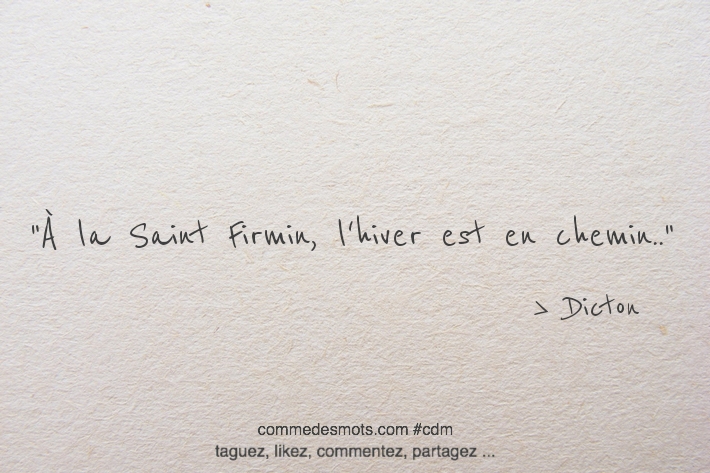 "À la Saint Firmin, l'hiver est en chemin.."
> Dicton
commedesmots.com #cdm
taguez, likez, commentez, partagez ...